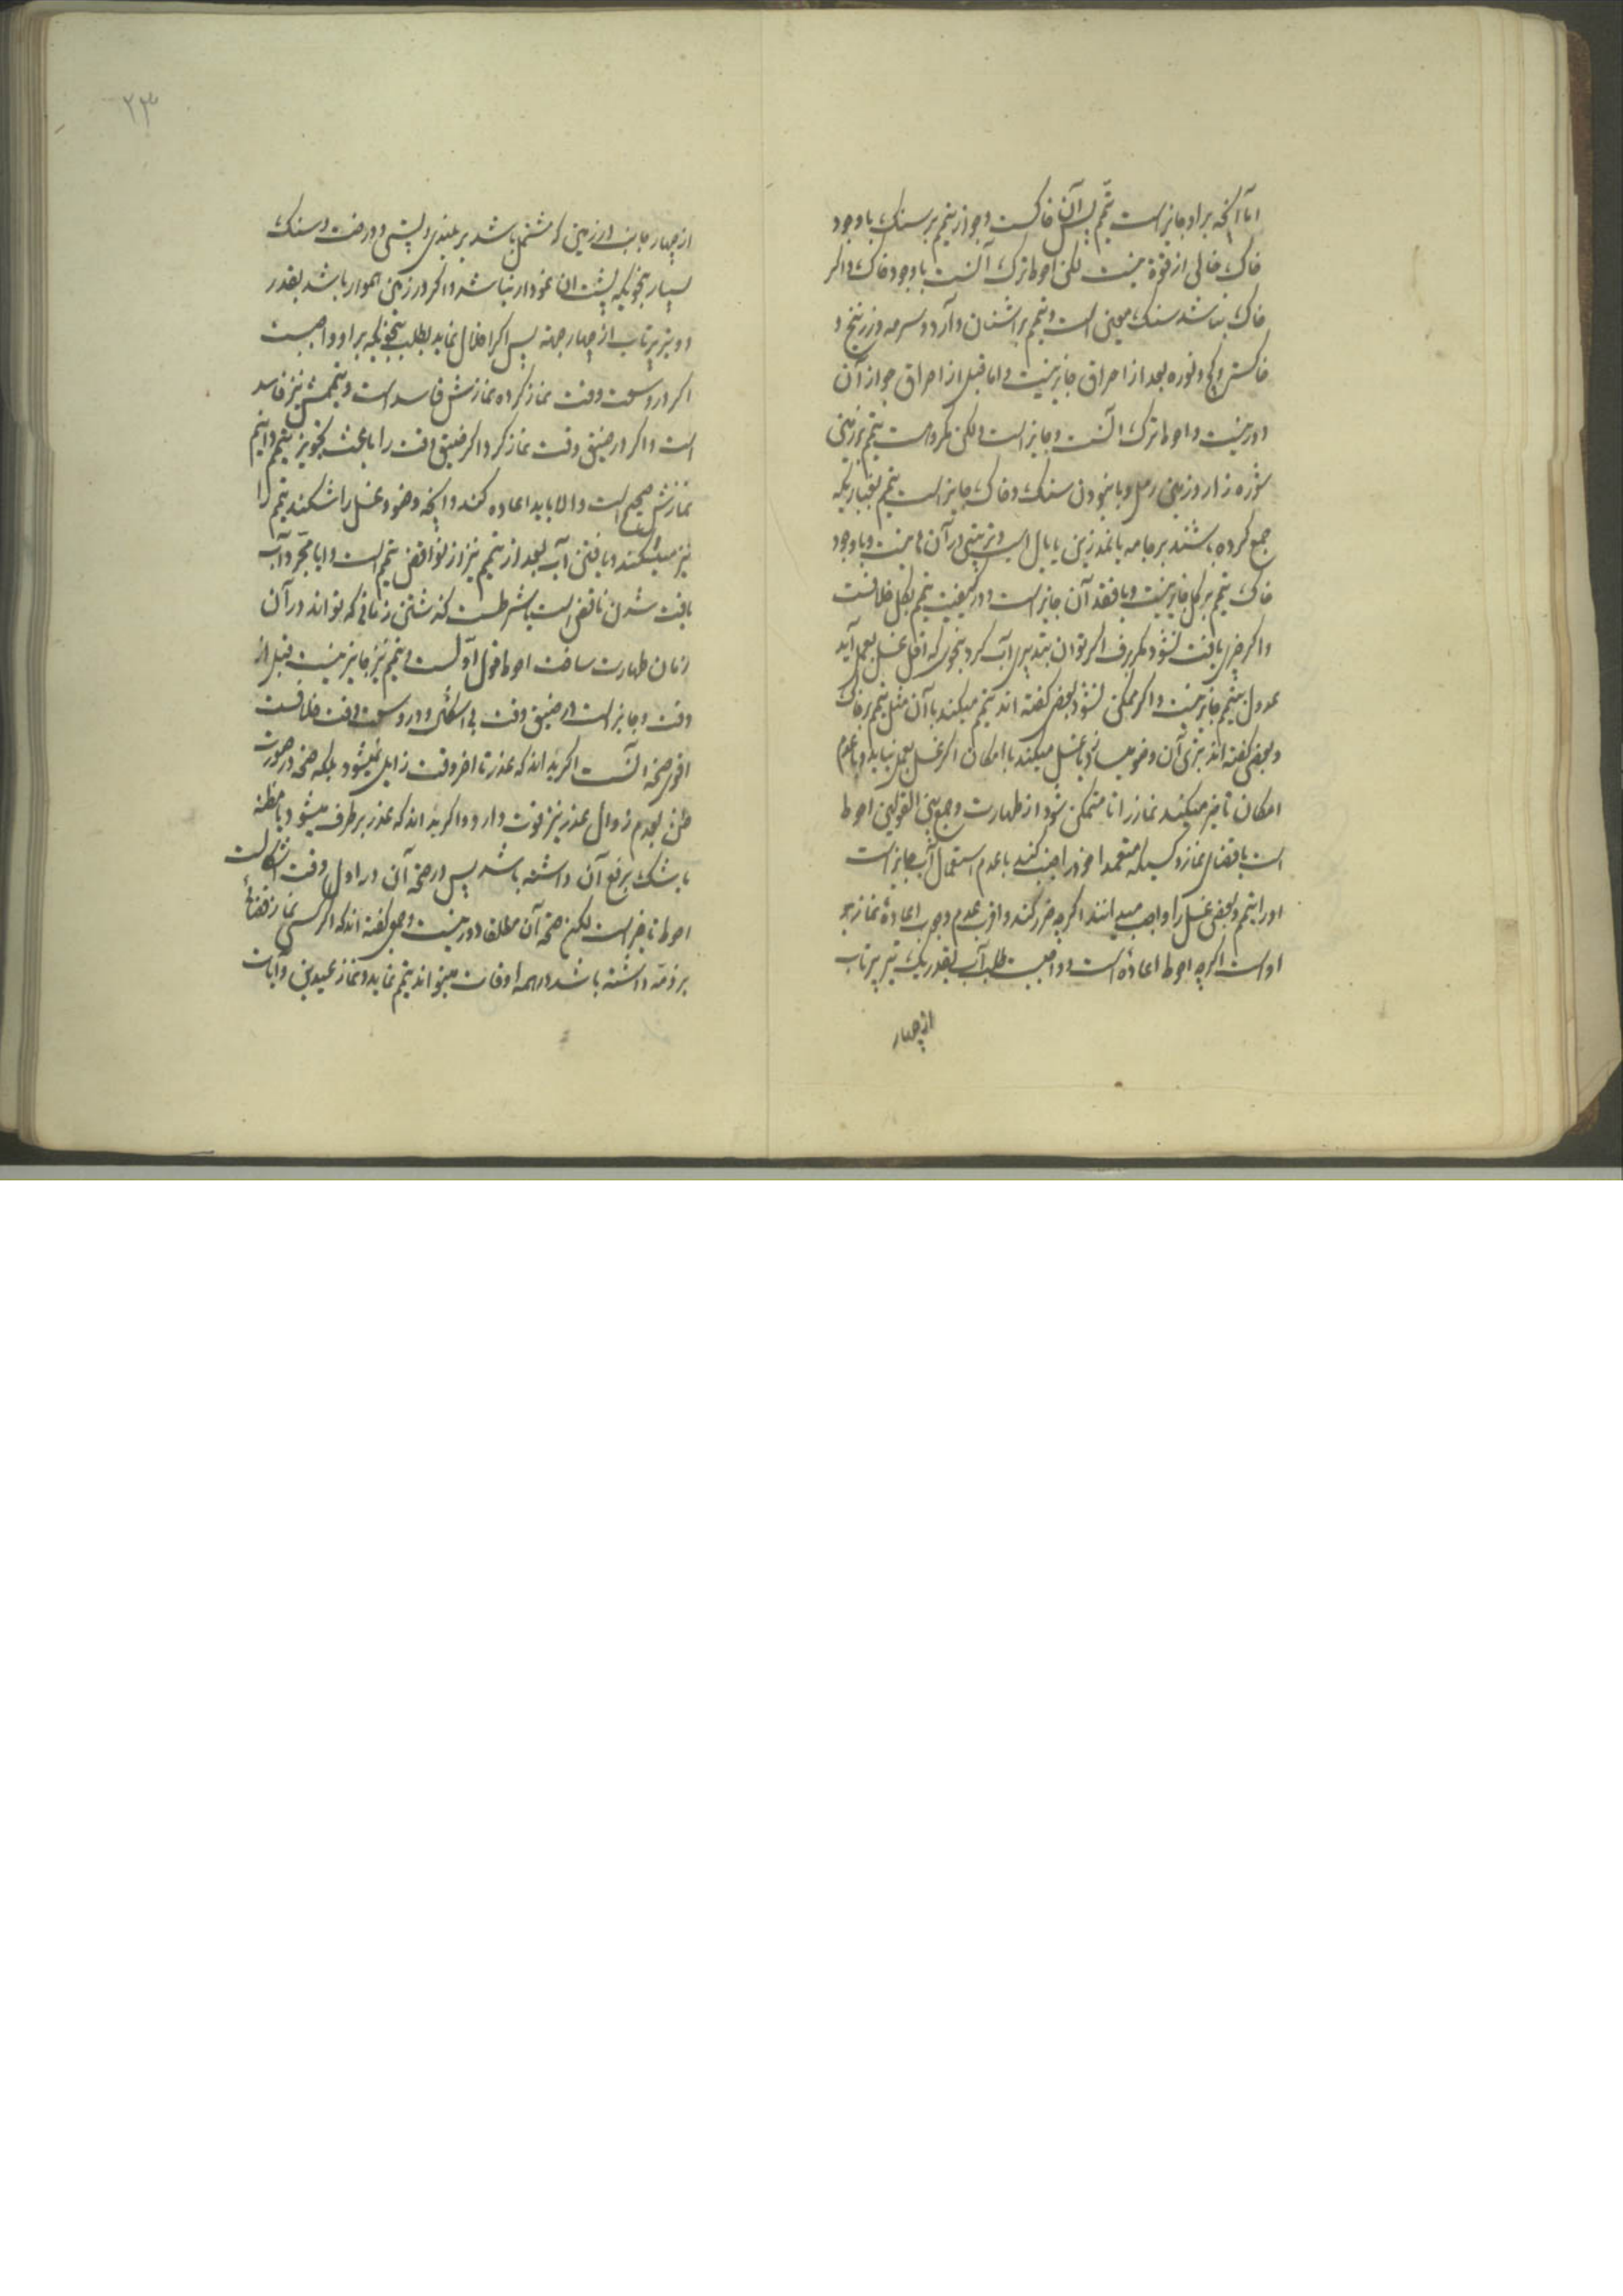 اما آنچه براو جایز است تیمم پس آن خاکست و جواز تیمم بر سنک با وجود
خاک خالی از قوة نیست لکن احوط ترک آنست با وجود خاک و اکر
خاک نباشد سنک معین است و تیمم بر اشنان و آرد و سرمه و زرنیخ و
خاکستر و کچ و نوره بعد از احراق جایز نیست و اما قبل از احراق جواز آن
دور نیست و احوط ترک آنست و جایز است ولکن مکروهست تیمم بر زمین
شوره زار و زمین رمل و با نبودن سنک و خاک جایز است تیمم بغباریکه
جمع کرده باشند بر جامه یا نمد زین یا یال اسب و ترتیبی در آن نیست و با وجود
خاک تیمم بر کل جایز نیست و با فقد آن جایز است و در کیفیت تیمم بکل خلافست
و اکر چیزی یافت نشود مکر برف اکر توان بتدبیر آب کرد بنحوی که اقل غسل بعمل آید
عدول بتیمم جایز نیست و اکر ممکن نشود بعضی کفته اند تیمم میکند بآن مثل تیمم بر خاک
و بعضی کفته اند بتری آن وضو میسازد یا غسل میکند با امکان اکر غسل بعمل نیاید و با عدم
امکان تاخیر میکند نماز را تا متمکن شود از طهارت و جمع بین القولین احوط
است با قضای نماز و کسیکه متعمدا خود را جنب کند با عدم استعمال آب جایز است
او را تیمم و بعضی غسل را واجب میدانند اکرچه ضرر کند و اقرب عدم وجوب اعادهٔ نماز بر
او است اکرچه احوط اعاده است و واجبست طلب آب بقدر یک تیر پرتاب
از چهار
۲۳
از چهار جانب در زمینی که مشتمل باشد بر بلندی و پستی و درخت و سنک
بسیار بنحویکه پشت آن نمودار نباشد و اکر در زمین هموار باشد بقدر
دو تیر پرتاب از چهار جهة پس اکر اخلال نماید بطلب بنحویکه بر او واجبست
اکر در وسعت وقت نماز کرده نمازش فاسد است و تیممش نیز فاسد
است و اکر در ضیق وقت نماز کرد اکر ضیق وقت را باعث تجویز تیمم دانیم
نمازش صحیح است والا باید اعاده کند و آنچه وضو و غسل را شکند تیمم را
نیز میشکند و یافتن آب بعد از تیمم نیز از نواقض تیمم است و ایا مجرد آب
یافت شدن ناقض است یا شرطست کذشتن زمانی که تواند در آن
زمان طهارت ساخت احوط قول اولست و تیمم نیز جایز نیست قبل از
وقت و جایز است در ضیق وقت بی اشکال و در وسعت وقت خلافست
اقوی صحة آنست اکر بداند که عذر تا اخر وقت زایل نمیشود بلکه صحة در صورت
ظن بعدم زوال عذر نیز قوت دارد و اکر بداند که عذر بر طرف میشود یا مظنه
یا شک برفع آن داشته باشد پس در صحة آن در اول وقت اشکالست
احوط تاخیر است لکن صحة آن مطلقا دور نیست و جمعی کفته اند که اکر کسی نماز قضائی
بر ذمه داشته باشد در همه اوقات میتواند تیمم نماید و نماز عیدین و آیات